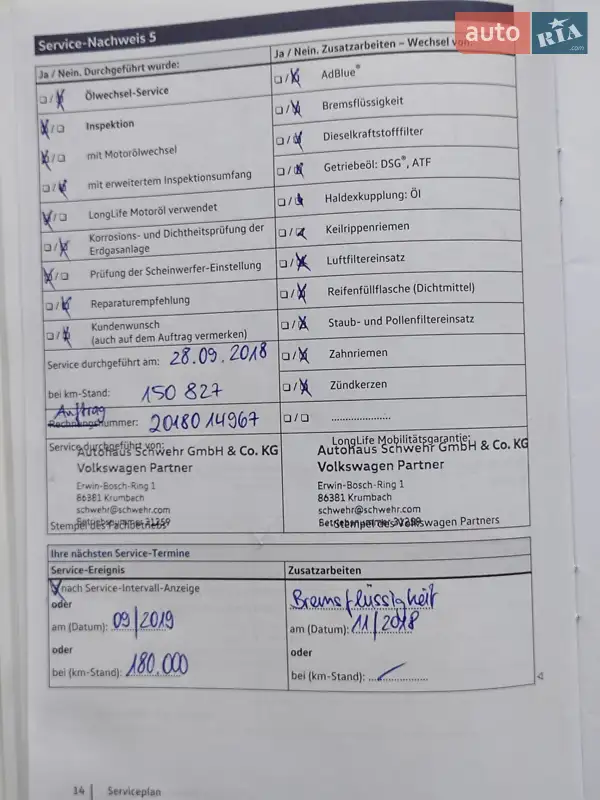 auto RIA .com
Service-Nachweis 5
Ja / Nein. Durchgeführt wurde:
Ölwechsel-Service
Inspektion
mit Motorölwechsel
mit erweitertem Inspektionsumfang
LongLife Motoröl verwendet
Korrosions- und Dichtheitsprüfung der
Erdgasanlage
Prüfung der Scheinwerfer-Einstellung
Reparaturempfehlung
Kundenwunsch
(auch auf dem Auftrag vermerken)
Service durchgeführt am: 28.09.2018
bei km-Stand: 150 827
Auftrag
Rechnungsnummer: 2018014967
Ja / Nein. Zusatzarbeiten – Wechsel von:
AdBlue®
Bremsflüssigkeit
Dieselkraftstofffilter
Getriebeöl: DSG®, ATF
Haldexkupplung: Öl
Keilrippenriemen
Luftfiltereinsatz
Reifenfüllflasche (Dichtmittel)
Staub- und Pollenfiltereinsatz
Zahnriemen
Zündkerzen
....................
Service durchgeführt von:
Autohaus Schwehr GmbH & Co. KG
Volkswagen Partner
Erwin-Bosch-Ring 1
86381 Krumbach
schwehr@schwehr.com
Betriebsnummer 31259
Stempel des Fachbetriebs
LongLife Mobilitätsgarantie:
Autohaus Schwehr GmbH & Co. KG
Volkswagen Partner
Erwin-Bosch-Ring 1
86381 Krumbach
schwehr@schwehr.com
Betriebsnummer 31259
Stempel des Volkswagen Partners
Ihre nächsten Service-Termine
Service-Ereignis
nach Service-Intervall-Anzeige
oder
am (Datum): 09/2019
oder
bei (km-Stand): 180.000
Zusatzarbeiten
Bremsflüssigkeit
am (Datum): 11/2018
oder
bei (km-Stand):
14 Serviceplan